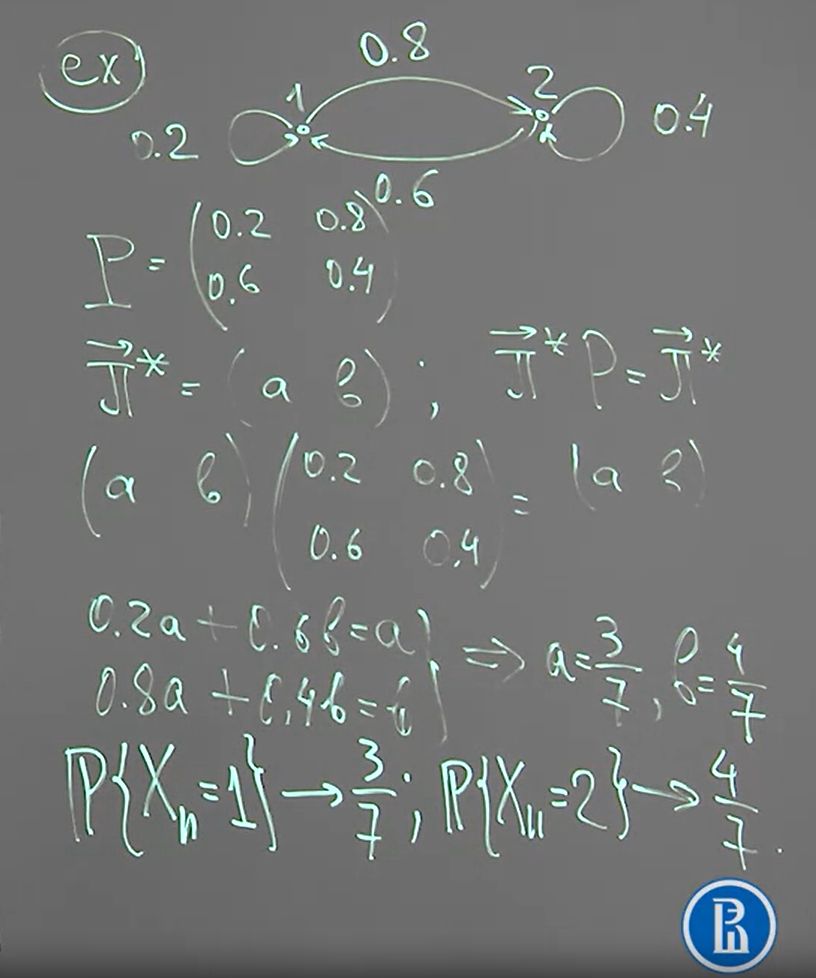 ex
0.8
1 2
0.2 0.4
0.6
P = (0.2 0.8
0.6 0.4)
π⃗* = (a b) ; π⃗* P = π⃗*
(a b) (0.2 0.8
0.6 0.4) = (a b)
0.2a + 0.6b = a
0.8a + 0.4b = b } ⇒ a = 3/7, b = 4/7
P{Xn = 1} → 3/7; P{Xn = 2} → 4/7.